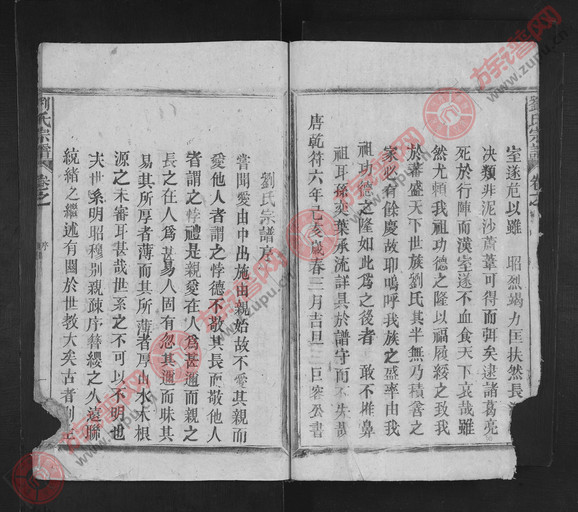 劉氏宗譜
卷之
室遂危以雖 昭烈竭力匡扶然長
决類非泥沙蘆葦可得而弭矣逮諸葛亮
死於行陣而漢室遂不血食天下哀哉雖
然尤賴我祖功德之隆以福履綏之致我
於蕃盛天下世族劉氏其半無乃積善之
家必有餘慶故歟嗚呼我族之盛率由我
祖功德之隆如此為之後者 敢不推鼻
祖耳孫奕葉承流詳具於譜守而不失哉
唐乾符六年己亥歲春三月吉旦 巨容公書
劉氏宗譜序
嘗聞愛由中出施由親始故不愛其親而
愛他人者謂之悖德不敬其長而敬他人
者謂之悖禮是親愛在人為甚邇而親之
長之在人為甚易人固有忽其邇而昧其
易其所厚者薄而其所薄者厚由水木根
源之未審耳甚哉世系之不可以不明也
夫世系明昭穆别親疎序簪纓之久遠聯
統緒之繼述有關於世教大矣古者
劉氏宗譜
卷之
序
族谱网
www.zupu.cn